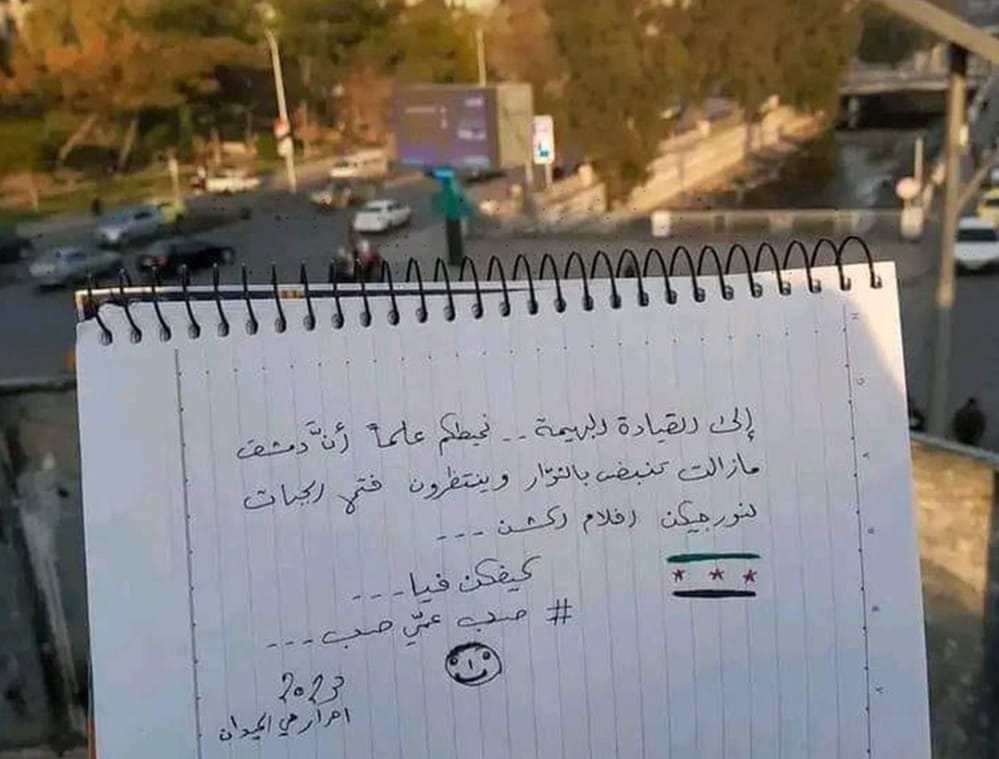 إلى القيادة البهيمة .. نحيطكم علماً أنَّ دمشق
مازالت تنبض بالثوّار وينتظرون فتح الجبهات
لنورجيكن افلام اكشن ...
كيفكن فيا ...
# صب عمّي صب ...
2023
احرار حي الميدان